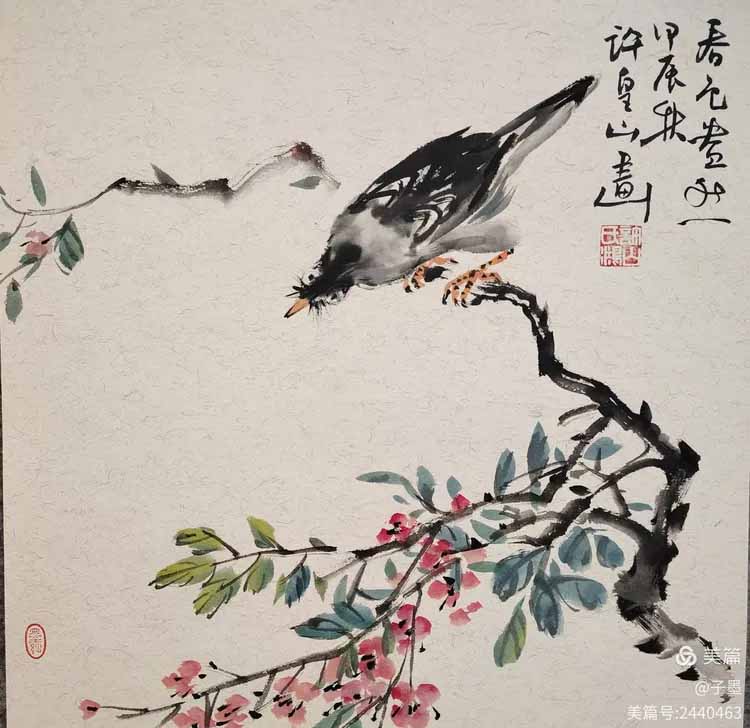 春色盎然
甲辰秋
許皇山畫
美篇
@子墨
美篇号:2440463